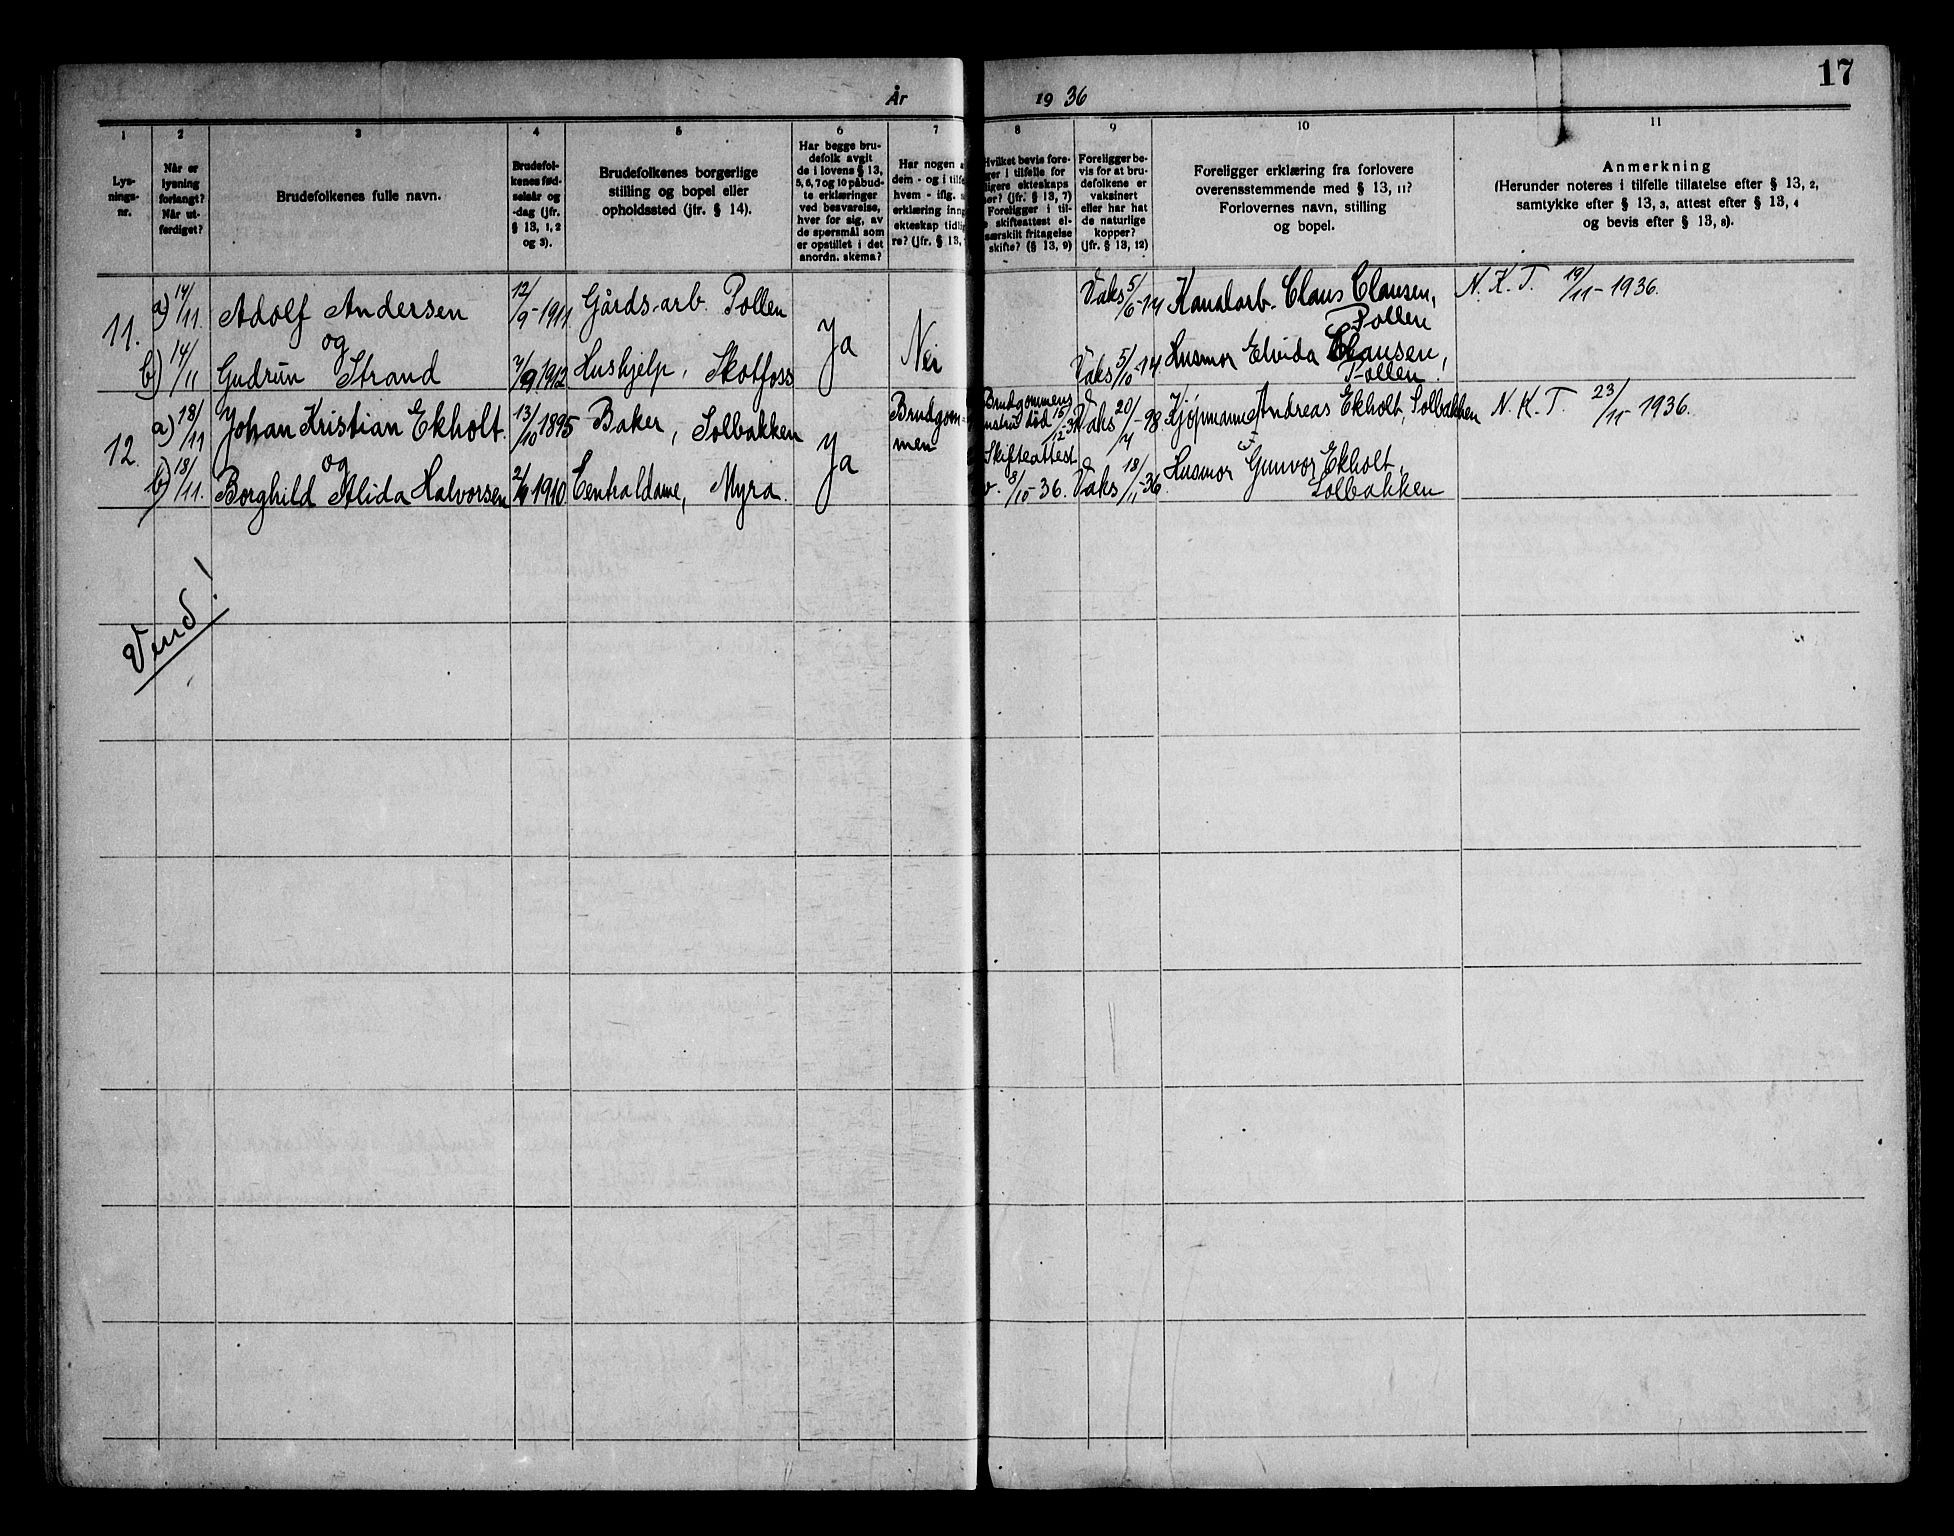 17
År 1936
1 2 3 4 5 6 7 8 9 10 11
Lys-
nings-
nr.
Når er
lysning
forlangt?
Når ut-
ferdiget?
Brudefolkenes fulle navn.
Brudefol-
kenes fød-
selsår og
-dag (jfr.
§ 13, 1, 2
og 3).
Brudefolkenes borgerlige
stilling og bopel eller
opholdssted (jfr. § 14).
Har begge bru-
defolk avgit
de i lovens § 13,
5, 6, 7 og 10 påbud-
te erklæringer
ved besvarelse,
hver for sig, av
de spørsmål som
er opstillet i det
anordn. skema?
Har nogen
dem - og i tilfe
hvem - iflg.
erklæring inng
ekteskap tidlig
re? (jfr. § 13,
Hvilket bevis fore-
ger i tilfelle for
ligere ekteskaps
hør? (jfr. § 13, 7)
Foreligger i til-
skifteattest el-
særskilt fritagelse
skifte? (§ 13, 9)
Foreligger be-
vis for at bru-
defolkene er
vaksinert
eller har hat
de naturlige
kopper?
(jfr. § 13, 12)
Foreligger erklæring fra forlovere
overensstemmende med § 13, 11?
Forlovernes navn, stilling
og bopel.
Anmerkning
(Herunder noteres i tilfelle tillatelse efter § 13, 2,
samtykke efter § 13, 3, attest efter § 13, 4
og bevis efter § 13, 8).
11.
a) 14/11 Adolf Andersen 12/9-1911 Gårds-arb. Pollen
og
b) 14/11 Gudrun Strand 7/9 1912 Hushjelp, Skotfoss
Ja
Nei
Vaks 5/6-14 Kanalarb. Claus Clausen,
Pollen
Vaks 5/10-14 Husmor Elvida Clausen,
Pollen!
N. K. T. 19/11-1936.
12.
a) 18/11 Johan Kristian Ekholt. 13/10 1895 Baker, Solbakken
og
b) 18/11. Borghild Alida Halvorsen 1910 Centraldame, Myra.
Ja
Brudgom-
men
Brudgommens
hustru død 15/12-
Skifteattest
v. 8/10-36.
Vaks 20/7-98. Kjøpmann Andreas Ekholt, Solbakken
Vaks 18/11-36. Husmor Gunvor Ekholt,
Solbakken
N. K. T. 23/11-1936.
Vend!